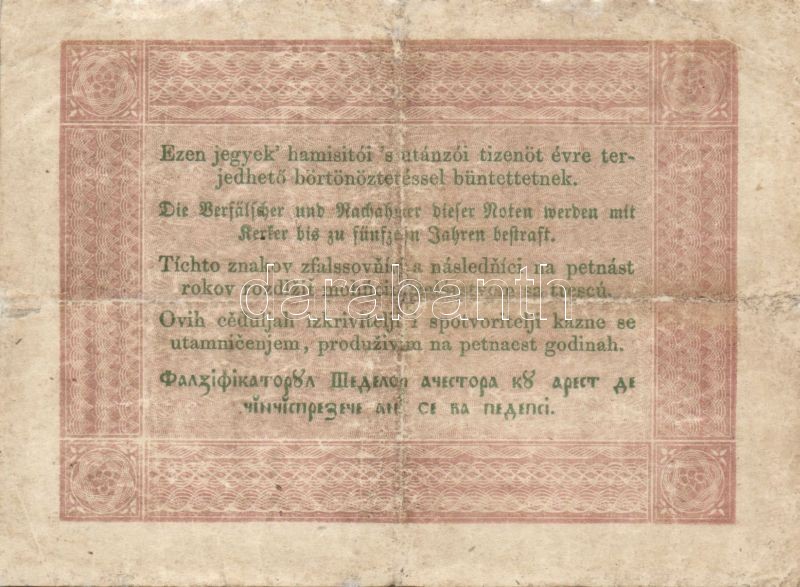 Ezen jegyek' hamisitói 's utánzói tizenöt évre ter-
jedhető börtönöztetéssel büntettetnek.
Die Verfälscher und Nachahmer dieser Noten werden mit
Kerker bis zu fünfzehn Jahren bestraft.
Tíchto znakov zfalssovňíci a následňíci na petnást
rokov
sa trescú.
Ovih cěduljah izkrivitelji i spotvoritelji kazne se
utamničenjem, produživim na petnaest godinah.
Фалзіфікаторꙋл Шеделор ачестора кꙋ арест де
чінчіспрезече ані се ва педепсі.
darabanth